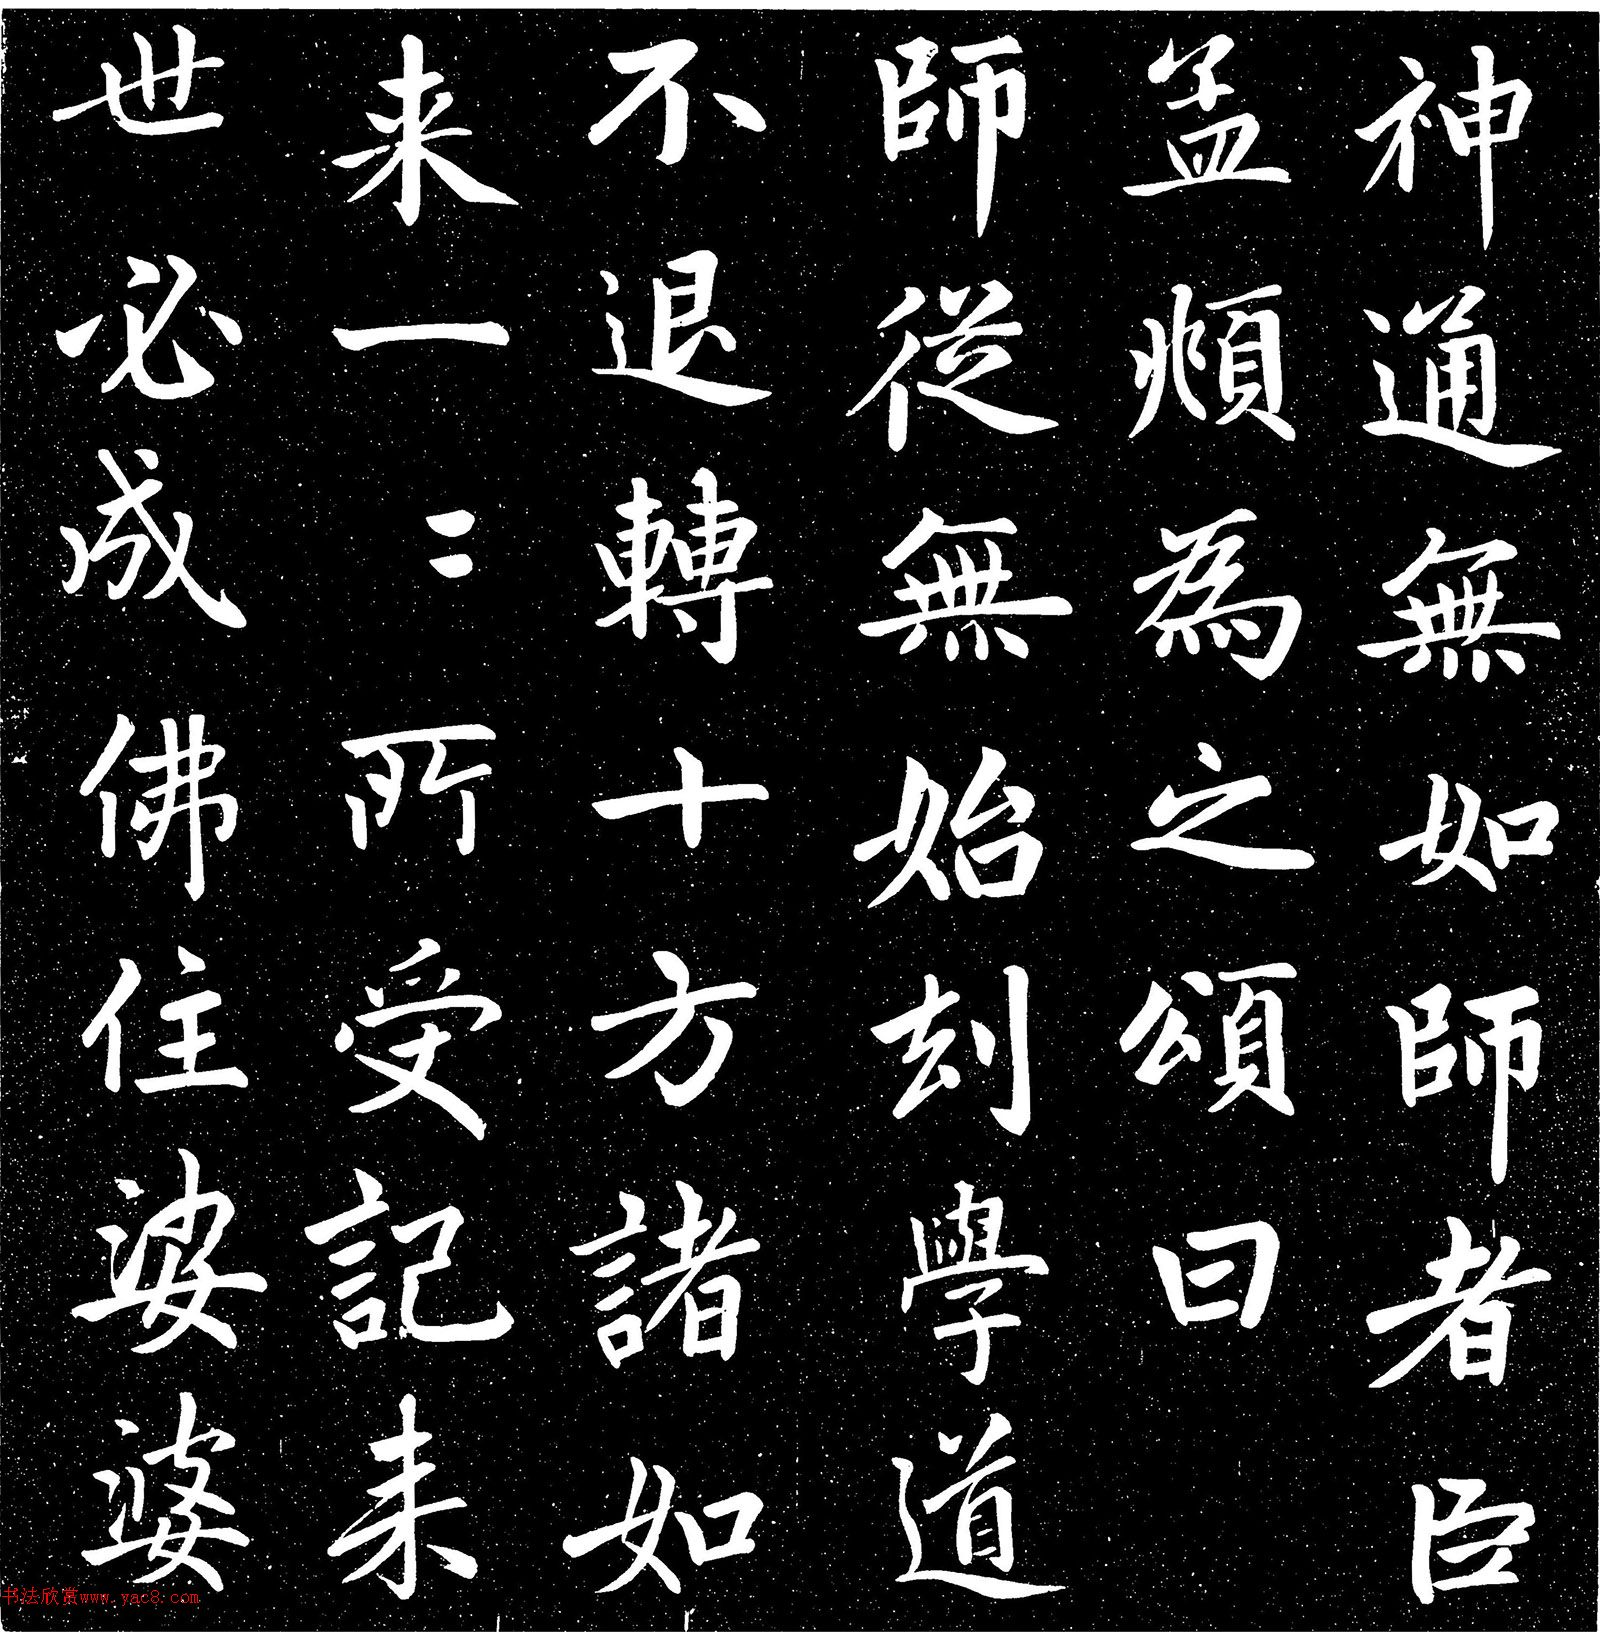 神通無如師者臣
孟頫為之頌曰
師從無始刦學道
不退轉十方諸如
来一〻所受記来
世必成佛住娑婆
书法欣赏www.yac8.com